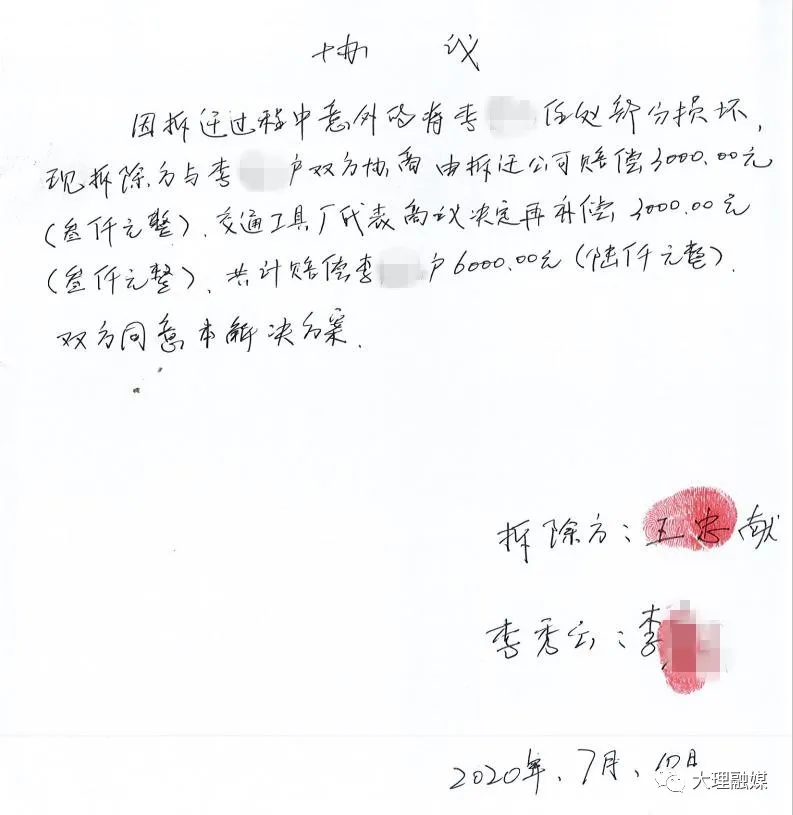 协 议
因拆迁过程中意外的将李 住处部分损坏,
现拆除方与李 户双方协商 由拆迁公司赔偿3000.00元
(叁仟元整).交通工具厂代表商议决定再补偿3000.00元
(叁仟元整).共计赔偿李 户6000.00元(陆仟元整).
双方同意本解决方案.
拆除方:王忠献
李秀云:李
2020年、7月、 日
大理融媒